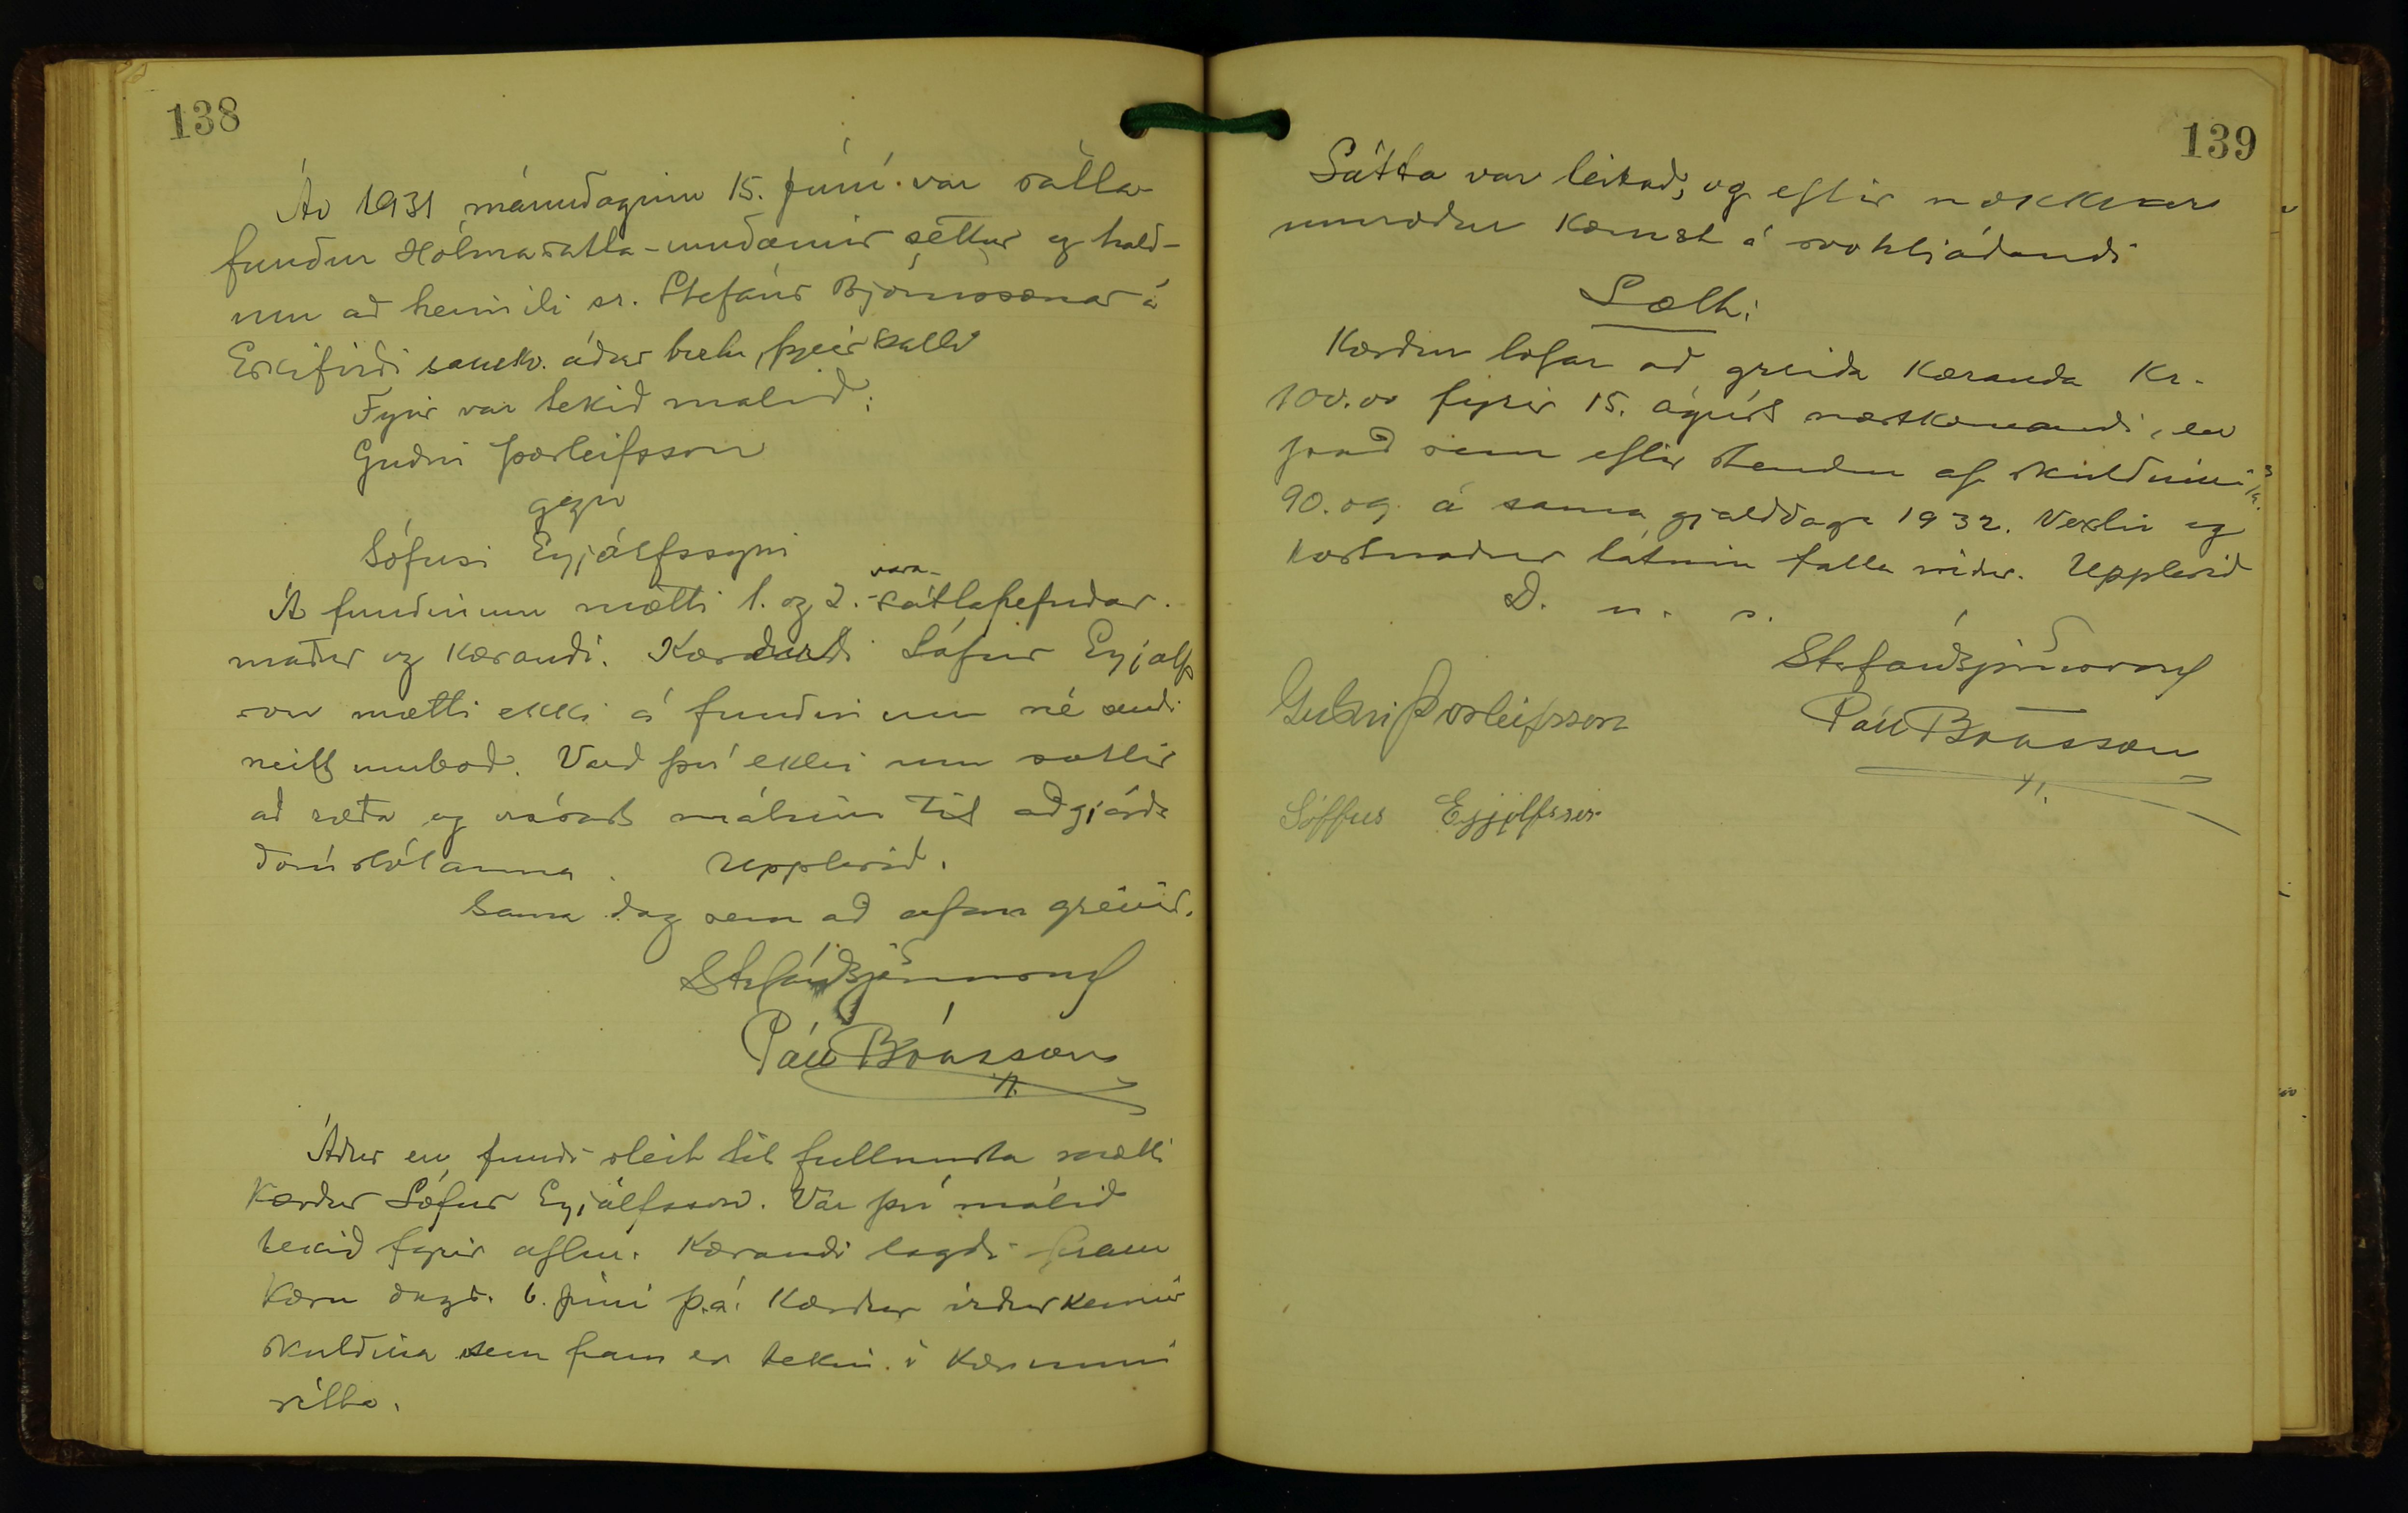 138
Ár 1931 mánudaginn 15. júní var sátta-
fundur Hólmasátta-umdæmis settur og hald-
inn að heimili sr. Stefáns Björnssonar á
Eskifirði samkv. áður birtu fyrirkalli
Fyrir var tekið málið:
Guðni Þorleifsson
gegn
Sófusi Eyjólfssyni
Á fundinum mætti 1. og 2. vara-sáttanefndar-
maður og kærandi. Kærði Sófus Eyjólfs
son mætti ekki á fundinum né sendi
neitt umboð. Varð því ekki um sættir
að ræða og vísast málinu til aðgjörða
dómstólanna. Upplesið.
Sama dag sem að ofan greinir.
Stefán Björnsson
Páll Bóasson
Áður en fundi sleit til fullnustu mætti
kærður Sófus Eyjólfsson. Var þá málið
tekið fyrir aftur. Kærandi lagði fram
kæru dags. 6. júní þ.á. Kærður viðurkennir
skuldina sem fram er tekin í kærunni
rétta.
139
Sátta var leitað, og eftir nokkrar
umræður komst á svohljóðandi
Sætt:
Kærður lofar að greiða kæranda Kr.
100.00 fyrir 15. ágúst næstkomandi, en
það sem eftir stendur af skuldinni
90. og á sama gjalddaga 1932. Vextir og
kostnaður látnir falla niður. Upplesið
D. u. s.
Stefán Björnsson
Guðni Þorleifsson
Páll Bóasson
Sóffus Eyjólfsson